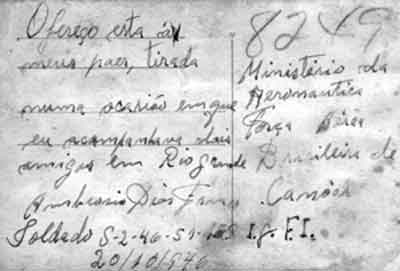 Ofereço esta à
meus paes, tirada
numa ocarião em que
eu acompanhava dois
amigos em Rio Grande
Ambrosio Dias
Soldado S-2-46-51-
20/10/946
8249
Ministério da
Aeronautica
Força Aérea
Brasileira de
Canôas
I.G.F.I.